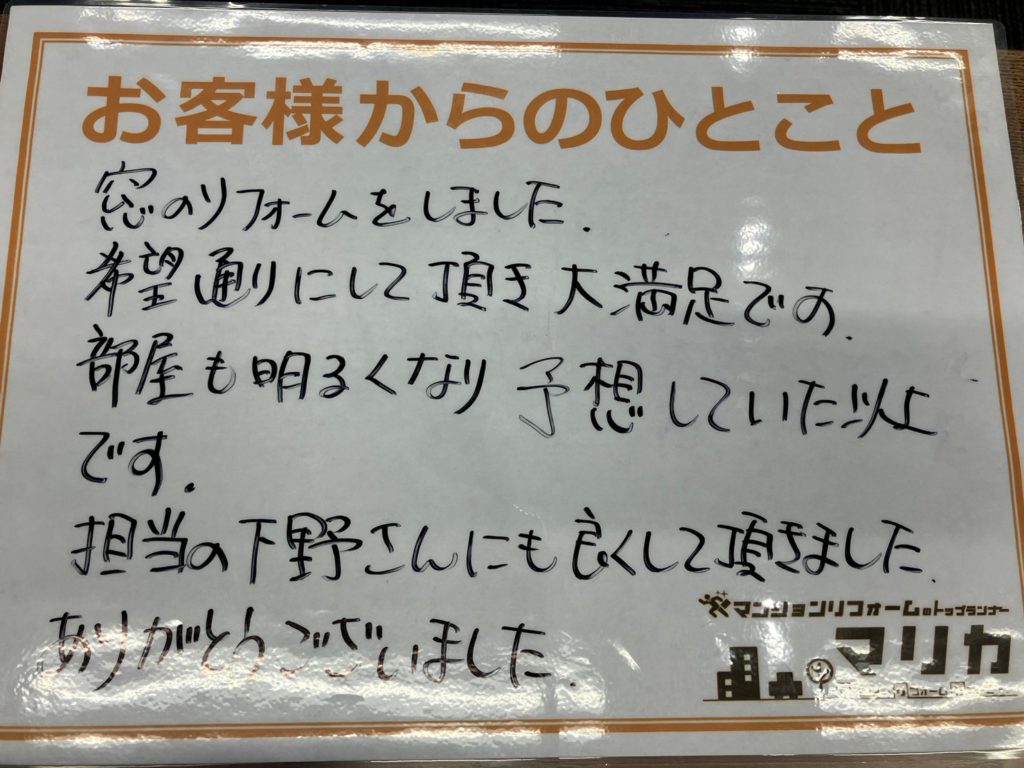 お客様からのひとこと
窓のリフォームをしました.
希望通りにして頂き大満足です.
部屋も明るくなり予想していた以上
です.
担当の下野さんにも良くして頂きました.
ありがとうございました.
マンションリフォームのトップランナー
マリカ